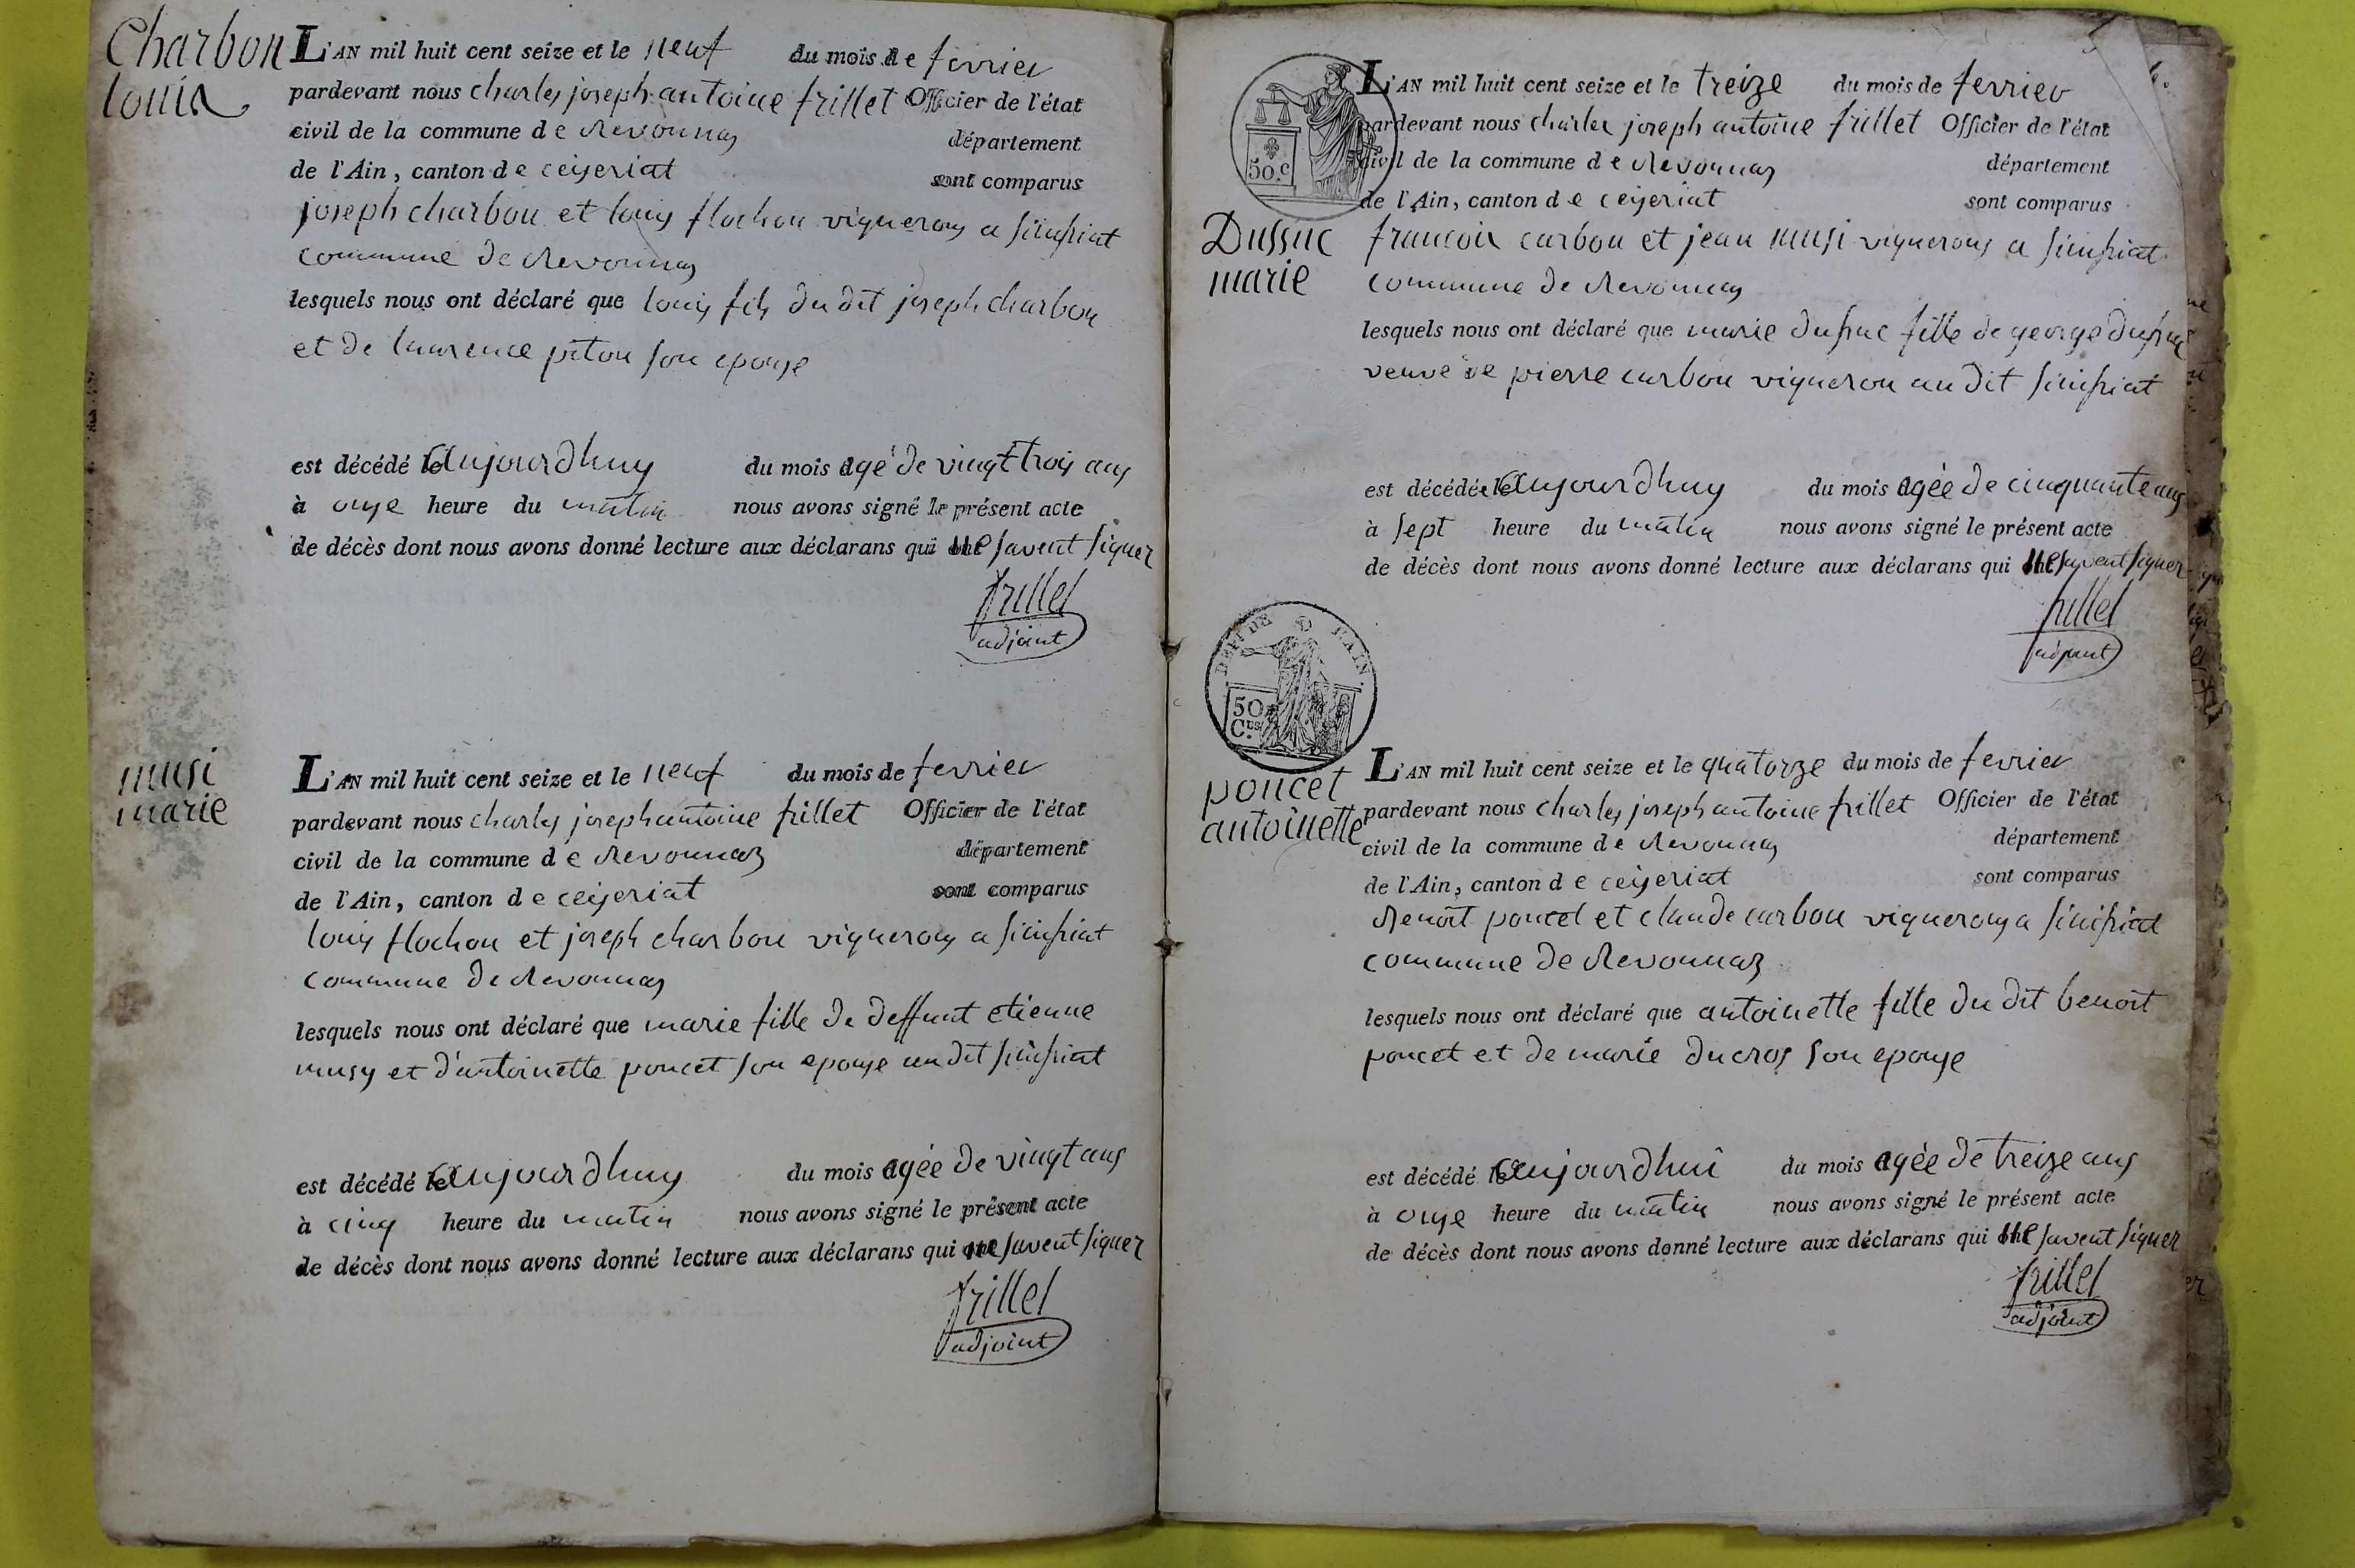 Charbon
louis
L'AN mil huit cent seize et le neuf du mois de fevrier
pardevant nous charles joseph antoine frillet Officier de l'état
civil de la commune de Revonnas département
de l'Ain, canton de ceyseriat sont comparus
joseph charbon et louis flochon vignerons a simsiat
commune de Revonnas
lesquels nous ont déclaré que louis fils du dit joseph charbon
et de laurence piton son epouse
est décédé le aujourdhuy du mois agé de vingt trois ans
à onze heure du matin nous avons signé le présent acte
de décès dont nous avons donné lecture aux déclarans qui ne savent signer
frillet
adjoint
musi
marie
L'AN mil huit cent seize et le neuf du mois de fevrier
pardevant nous charles joseph antoine frillet Officier de l'état
civil de la commune de Revonnas département
de l'Ain, canton de ceyseriat sont comparus
louis flochon et joseph charbon vignerons a simsiat
commune de Revonnas
lesquels nous ont déclaré que marie fille de deffunt etienne
musy et d'antoinette poncet son epouse au dit simsiat
est décédé le aujourdhuy du mois agée de vingt ans
à cinq heure du matin nous avons signé le présent acte
de décès dont nous avons donné lecture aux déclarans qui ne savent signer
frillet
adjoint
50.c
Dussuc
marie
L'AN mil huit cent seize et le treize du mois de fevrier
pardevant nous charles joseph antoine frillet Officier de l'état
civil de la commune de Revonnas département
de l'Ain, canton de ceyseriat sont comparus
francois carbon et jean musi vignerons a simsiat
commune de Revonnas
lesquels nous ont déclaré que marie dussuc fille de george dussuc
veuve de pierre carbon vigneron au dit simsiat
est décédée le aujourdhuy du mois agée de cinquante ans
à sept heure du matin nous avons signé le présent acte
de décès dont nous avons donné lecture aux déclarans qui ne savent signer
frillet
adjoint
DEPT DE L'AIN
50
Ces
poncet
antoinette
L'AN mil huit cent seize et le quatorze du mois de fevrier
pardevant nous charles joseph antoine frillet Officier de l'état
civil de la commune de Revonnas département
de l'Ain, canton de ceyseriat sont comparus
Benoit poncet et claude carbon vignerons a simsiat
commune de Revonnas
lesquels nous ont déclaré que antoinette fille du dit benoit
poncet et de marie ducros son epouse
est décédé le aujourdhui du mois agée de treize ans
à onze heure du matin nous avons signé le présent acte
de décès dont nous avons donné lecture aux déclarans qui ne savent signer
frillet
adjoint